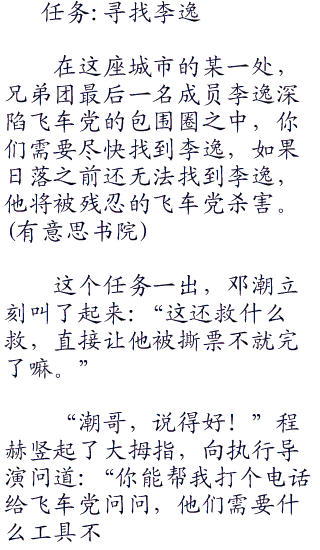 任务:寻找李逸
在这座城市的某一处，
兄弟团最后一名成员李逸深
陷飞车党的包围圈之中，你
们需要尽快找到李逸，如果
日落之前还无法找到李逸，
他将被残忍的飞车党杀害。
(有意思书院)
这个任务一出，邓潮立
刻叫了起来：“这还救什么
救，直接让他被撕票不就完
了嘛。”
“潮哥，说得好！”程
赫竖起了大拇指，向执行导
演问道：“你能帮我打个电话
给飞车党问问，他们需要什
么工具不